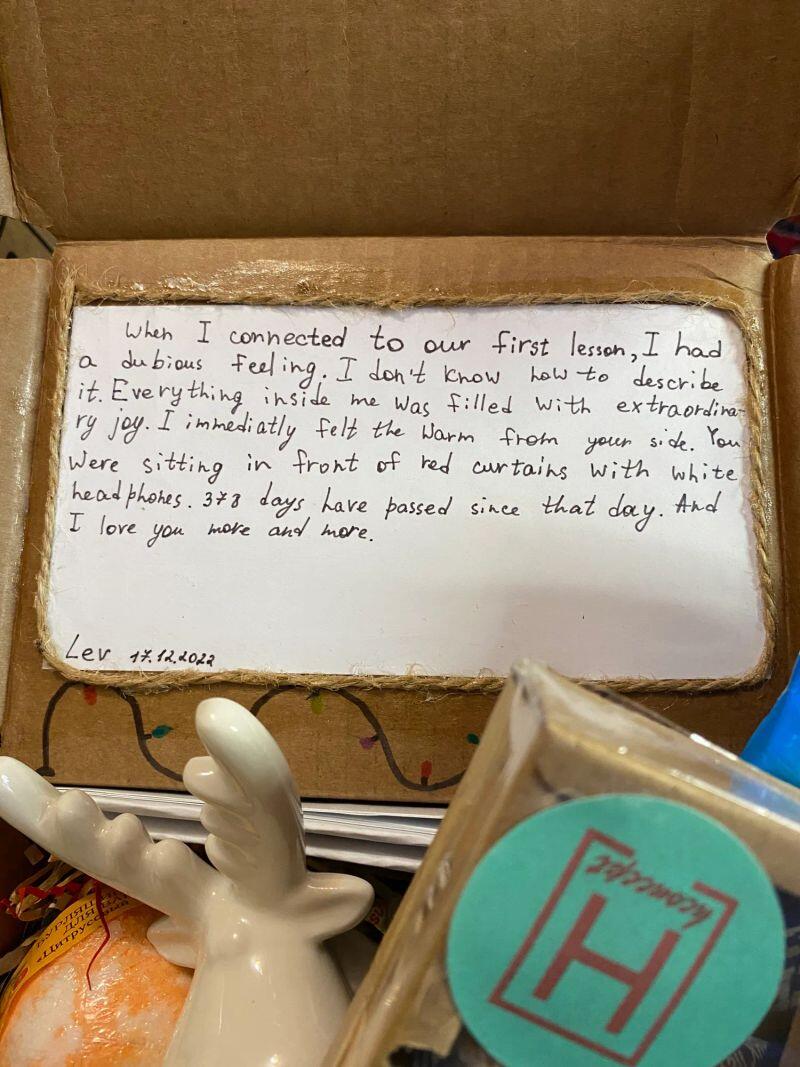 When I connected to our first lesson, I had
a dubious feeling. I don't know how to describe
it. Everything inside me was filled with extraordina-
ry joy. I immediatly felt the warm from your side. You
were sitting in front of red curtains with white
headphones. 378 days have passed since that day. And
I love you more and more.
Lev 17.12.2022
БУРЛЯЩ
ДЛЯ
«Цитрусовый
hconcept
H